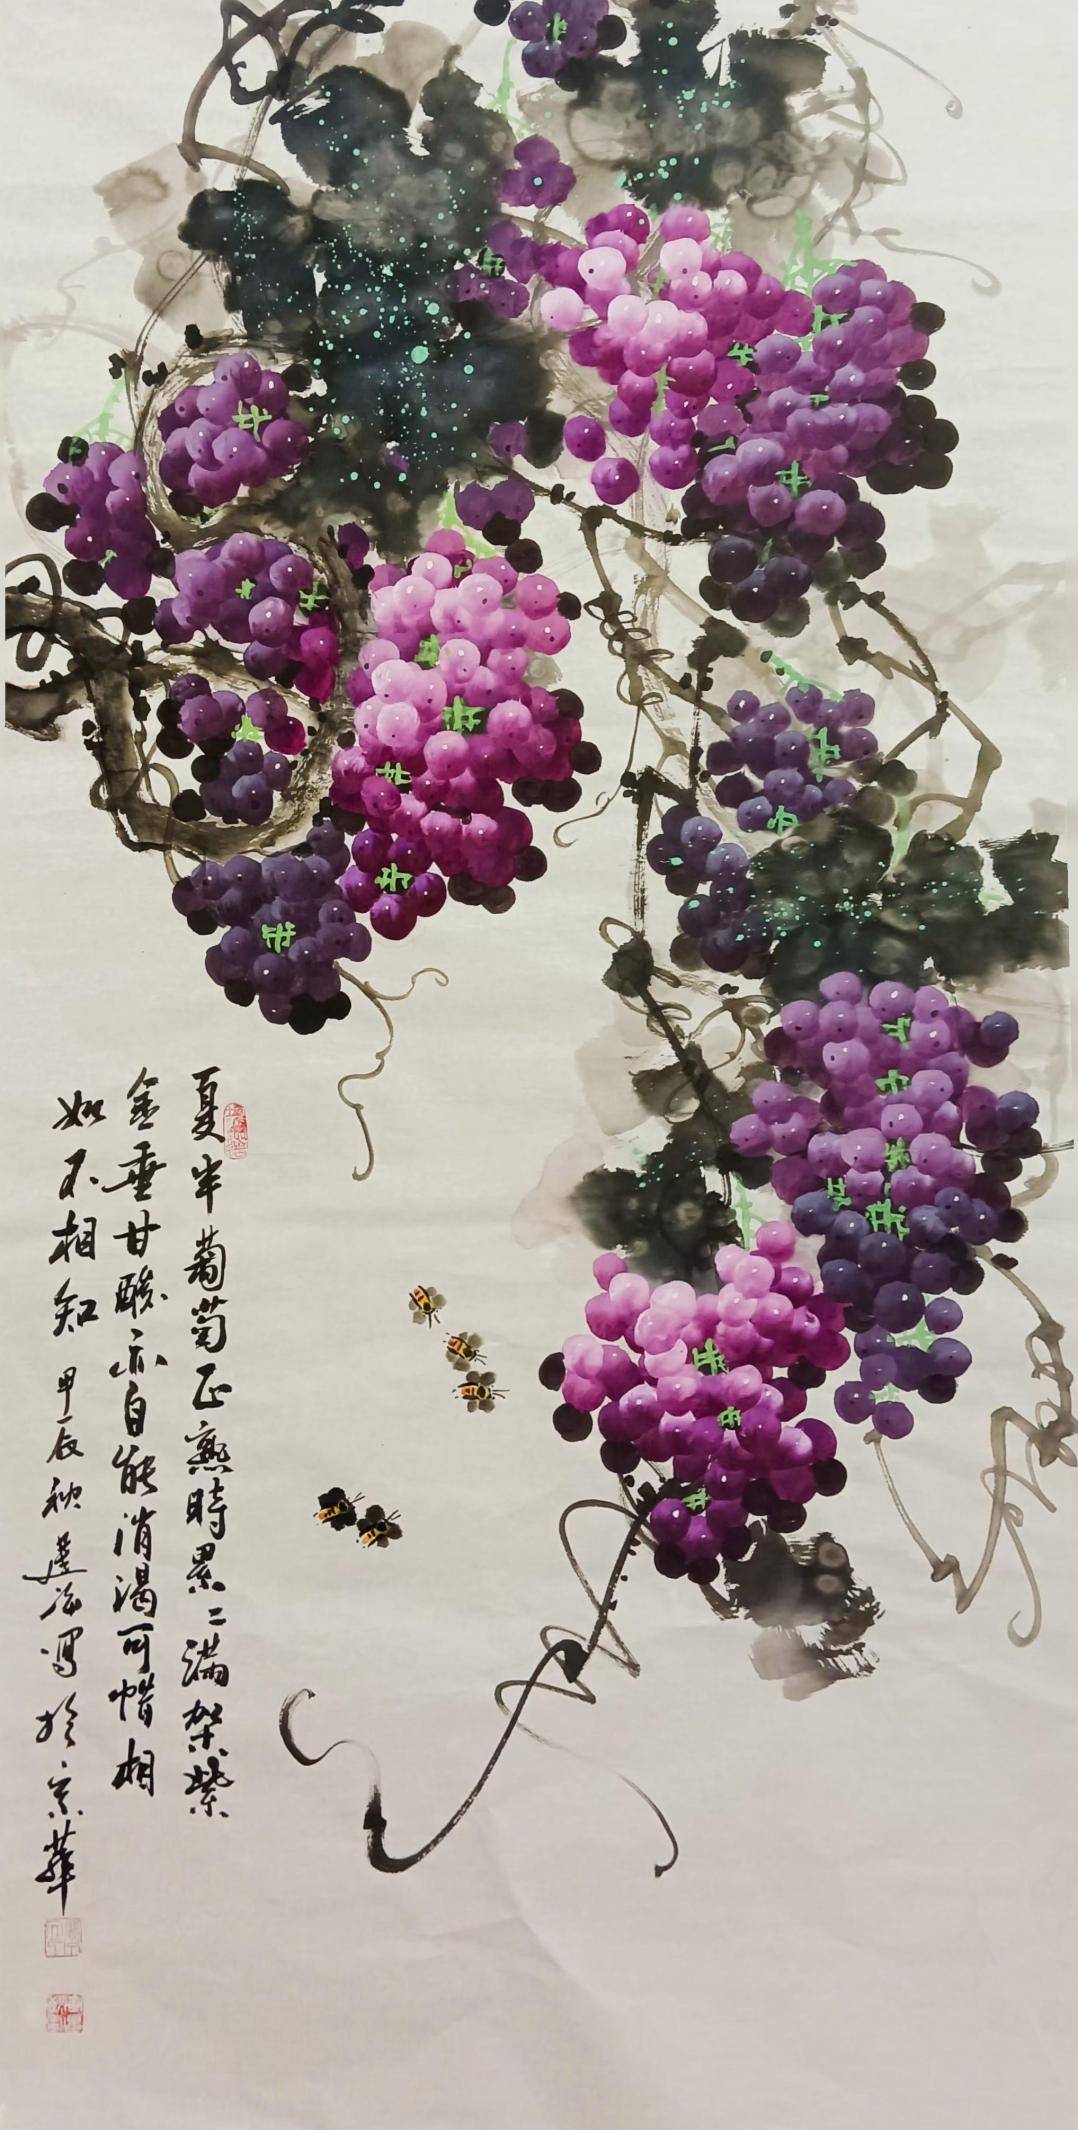 夏半葡萄正熟時累二滿架紫
金垂甘酸亦自能消渴可惜相
如不相知 甲辰秋蓮合寫於京華